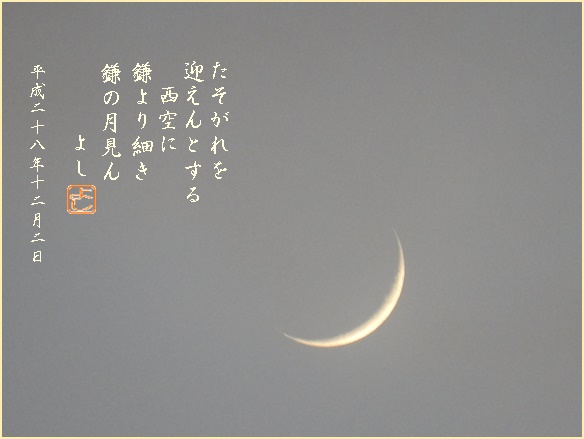 たそがれを
迎えんとする
西空に
鎌より細き
鎌の月見ん
よし
平成二十八年十二月二日